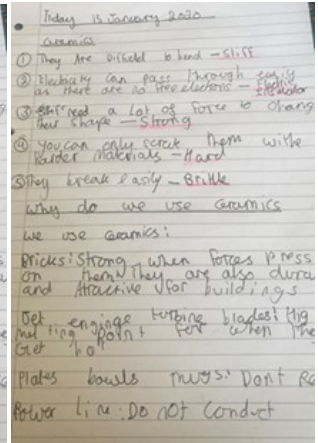 Today 15 January 2020
Ceramics
① They Are Difficuld to bend - Stiff
② Electricity can pass through easily
as there are no free electrons - Electric
insulator
③ need a lot of force to chang
their shape - Strong
④ You can only scratch them withe
harder materials - Hard
⑤ They break easily - Brittle
Why do we use ceramics
We use ceramics:
Bricks: Strong when forces Press
on them They are also dura
and Attractive for buildings
Jet enginge turbine blades: Hig
melting Point for when The
Get ho
Plates bowls mugs: Dont
Power line: Do not Conduct